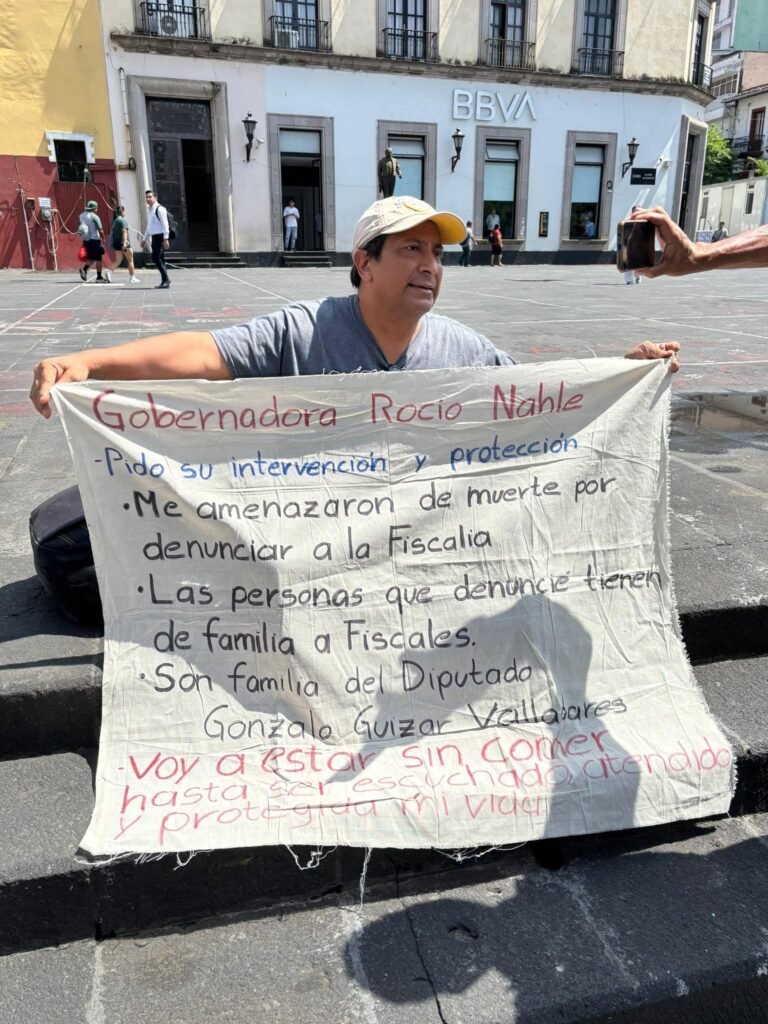 BBVA
Gobernadora Rocio Nahle
-Pido su intervención y protección
•Me amenazaron de muerte por
denunciar a la Fiscalia
•Las personas que denuncié tienen
de familia a Fiscales.
•Son familia del Diputado
Gonzalo Guizar Valladares
•Voy a estar sin comer
hasta ser escuchado, atendido
y protegida mi vida